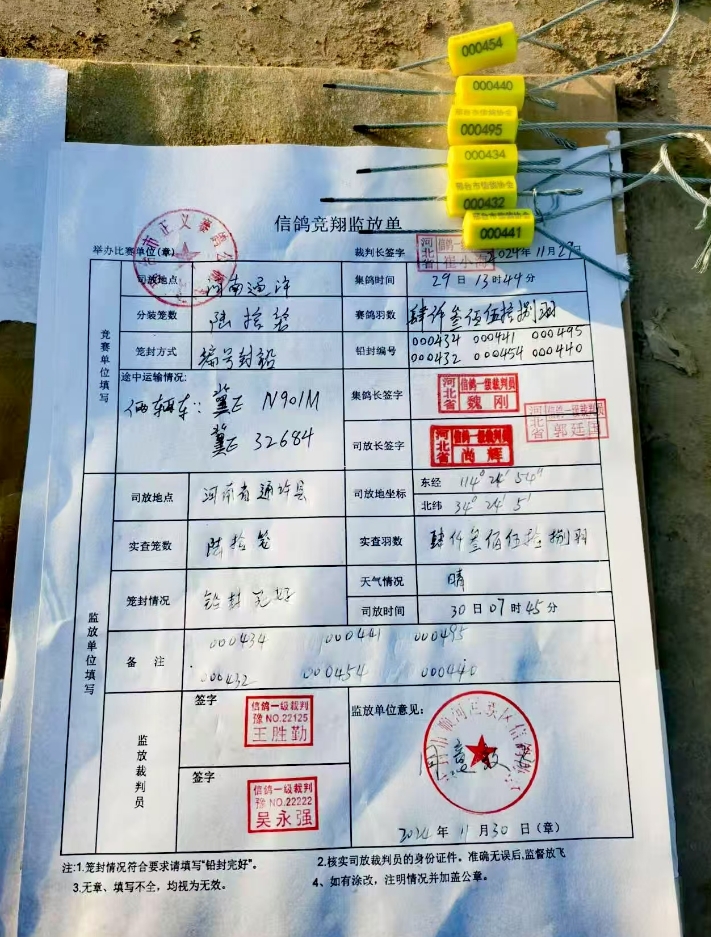 000454
000440
000495
000434
邢台市信鸽协会
000432
000441
信鸽竞翔监放单
举办比赛单位(章)
裁判长签字
2024年11月29日
竞赛单位填写
司放地点 河南通许
集鸽时间 29日13时49分
分装笼数 陆拾笼
赛鸽羽数 肆仟叁佰伍拾捌羽
笼封方式 编号封铅
铅封编号 000434 000441 000495
000432 000454 000440
途中运输情况:
俩辆车: 冀E N901M
冀E 32684
集鸽长签字 河北省 信鸽一级裁判员 魏刚
司放长签字 河北省 信鸽一级裁判员 尚辉
河北省 信鸽一级裁判员 郭廷国
监放单位填写
司放地点 河南省通许县
司放地坐标 东经 114° 24' 54"
北纬 34° 24' 5'
实查笼数 陆拾笼
实查羽数 肆仟叁佰伍拾捌羽
笼封情况 铅封完好
天气情况 晴
司放时间 30日07时45分
备 注 000434 000441 000495
000432 000454 000440
监放裁判员
签字
信鸽一级裁判
豫NO.22125
王胜勤
签字
信鸽一级裁判
豫NO.22222
吴永强
监放单位意见:
同意
2024年11月30日(章)
注:1.笼封情况符合要求请填写"铅封完好"。
2.核实司放裁判员的身份证件。准确无误后,监督放飞
3.无章、填写不全,均视为无效。
4、如有涂改,注明情况并加盖公章。